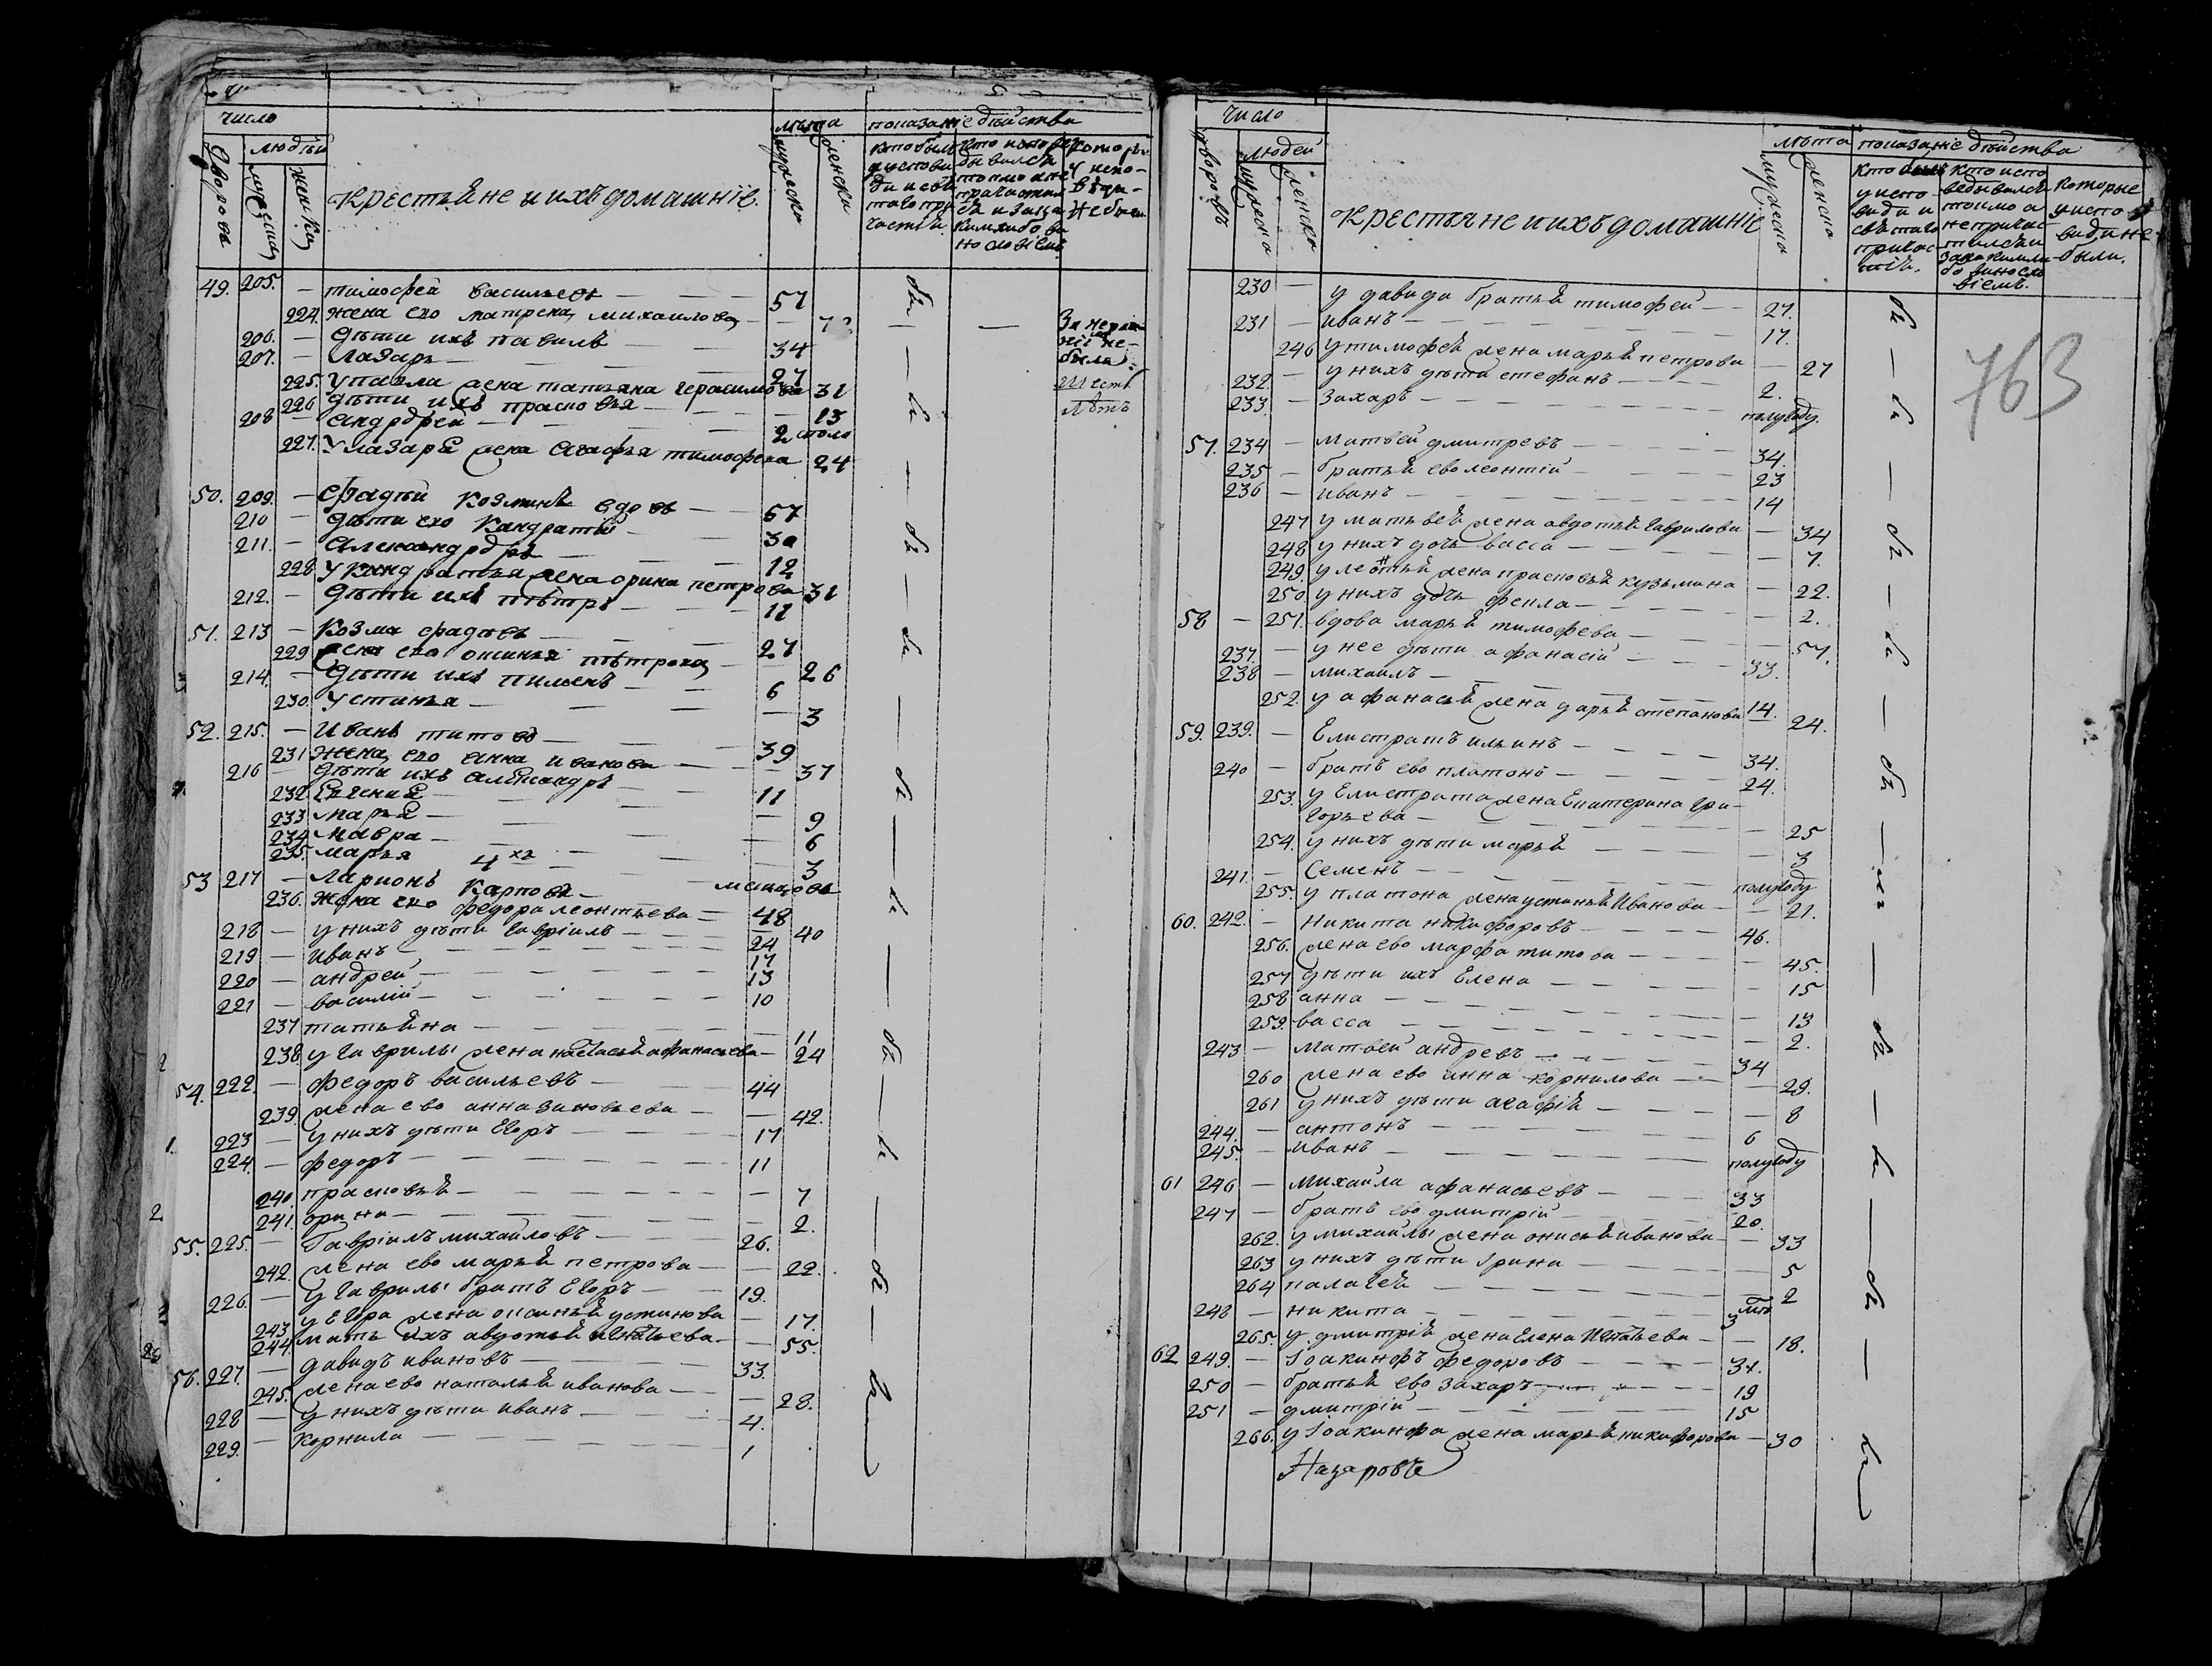 число
людѣй
дворовъ
мужеска
женска
крестьяне и ихъ домашніе.
лѣта
мужеска
женска
показаніе дѣйства
49. 205. — тимофей васильевъ — 57
224. жена его матрена михаилова —
206. — дѣти ихъ павилъ — 34
207. — Лазарь — 27
225. у павла жена татьяна герасимова 31
226 дѣти ихъ прасковья — 13
208 — андрей — 2
227. у лазаря жена агафья тимофеева 24
50. 209. — Фадѣй козминъ вдовъ — 57
210 — дѣти его кандратий — 30
211. — александръ — 12
228 у кандратья жена орина петрова 31
212. — дѣти ихъ пѣтръ — 11
51. 213 — козма фадѣевъ — 27
229 жена его оксинья пѣтрова — 26
214. — дѣти ихъ пимѣнъ — 6
230. устинья — 3
52. 215. — иванъ титовъ — 39
231 жена его анна иванова — 37
216 — дѣти ихъ александръ — 11
232. Евгения — 9
233 марья — 6
234 мавра — 3
235. марья 4 хъ месяцовъ
53 217 — Ларионъ карповъ — 48
236. жена его федора леонтьева — 40
218 — у нихъ дѣти гавріилъ — 24
219 — иванъ — 17
220 — андрей — 13
221 — василій — 10
237 татьяна — 11
238 у гаврилы жена настасья афанасьева — 24
54. 222. — федоръ васильевъ — 44
239 жена ево анна зиновьева — 42.
223 — у нихъ дѣти Егоръ — 17
224. — федоръ — 11
240. прасковья — 7
241. орина — 2.
55. 225. — гавріилъ михайловъ — 26.
242. жена ево марья петрова — 22.
226. — у гаврилы братъ Егоръ — 19.
243 у Егора жена оксинья устинова — 17.
244. мать ихъ авдотья игнатьева — 55.
56. 227. — давидъ ивановъ — 33.
245. жена ево наталья иванова — 28.
228 — у нихъ дѣти иванъ — 4.
229. — корнила — 1
число
дворовъ
людей
мужеска
женска
крестьяне и ихъ домашніе
лѣта
мужеска
женска
показаніе дѣйства
763
230 — у давида братья тимофей — 27.
231 — иванъ — 17.
246 у тимофея жена марья петрова — 27
232. — у нихъ дѣти стефанъ — 2.
233. — захаръ — полугоду.
57. 234 — матвей дмитревъ — 34.
235 — братья ево леонтій — 23
236 — иванъ — 14
247 у матвея жена авдотья гаврилова — 34
248 у нихъ дочь васса — 7.
249. у леонтья жена прасковья кузьмина — 22.
250. у нихъ дочь фекла — 2.
58 — 251. вдова марья тимофева — 57.
237. — у нее дѣти афанасій — 33.
238 — михаилъ — 14.
252. у афанасья жена дарья степанова — 24.
59. 239. — Елистратъ ильинъ — 34.
240 — братъ ево платонъ — 24.
253. у Елистрата жена Екатерина гри-
горьева — 25
254. у нихъ дѣти марья — 3
241. — Семенъ — полугоду
255. у платона жена устинья иванова — 21.
60. 242. — никита никифоровъ — 46.
256. жена ево марфа титова — 45.
257 дѣти ихъ Елена — 15
258 анна — 13
259. васса — 2.
243 — матвей андревъ — 34
260 жена ево анна корнилова — 29.
261 у нихъ дѣти агафія — 8
244. — антонъ — 6
245. — иванъ — полугоду
61 246 — михаила афанасьевъ — 33
247 — братъ ево дмитрій — 20.
262. у михайлы жена онисья иванова — 33
263 у нихъ дѣти Ірина — 5
264 палагея — 2
248 — никита — 3
265. у дмитрія жена Елена игнатьева — 18.
62 249. — Іоакинфъ федоровъ — 31.
250 — братья ево захаръ — 19
251 — дмитрій — 15
266. у Іоакинфа жена марья никифорова — 30
Назаровъ